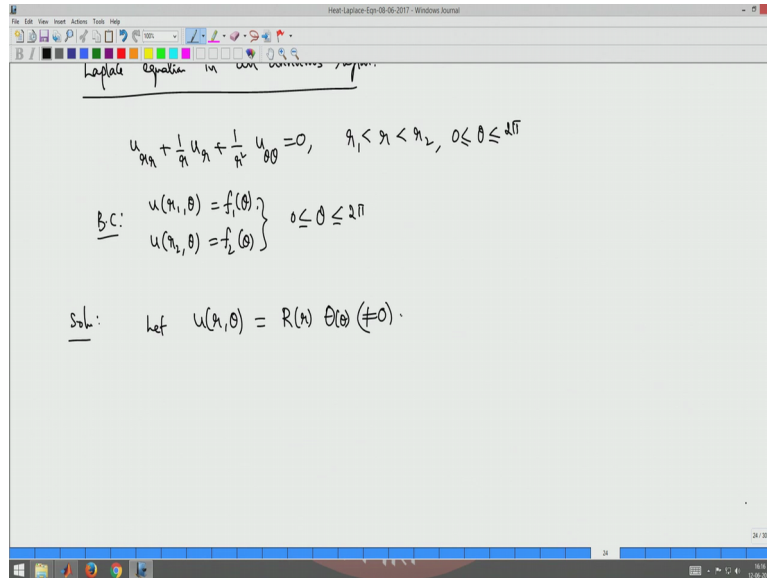 Heat-Laplace-Eqn-08-06-2017 - Windows Journal
File Edit View Insert Actions Tools Help
100%
B I
Laplace equation in an annulus region.
u_{rr} + \frac{1}{r} u_r + \frac{1}{r^2} u_{θθ} = 0, r_1 < r < r_2, 0 ≤ θ ≤ 2π
B.C: u(r_1, θ) = f_1(θ).
u(r_2, θ) = f_2(θ) } 0 ≤ θ ≤ 2π
Soln: Let u(r, θ) = R(r) Θ(θ) (≠0).
24 / 30
24
16:56